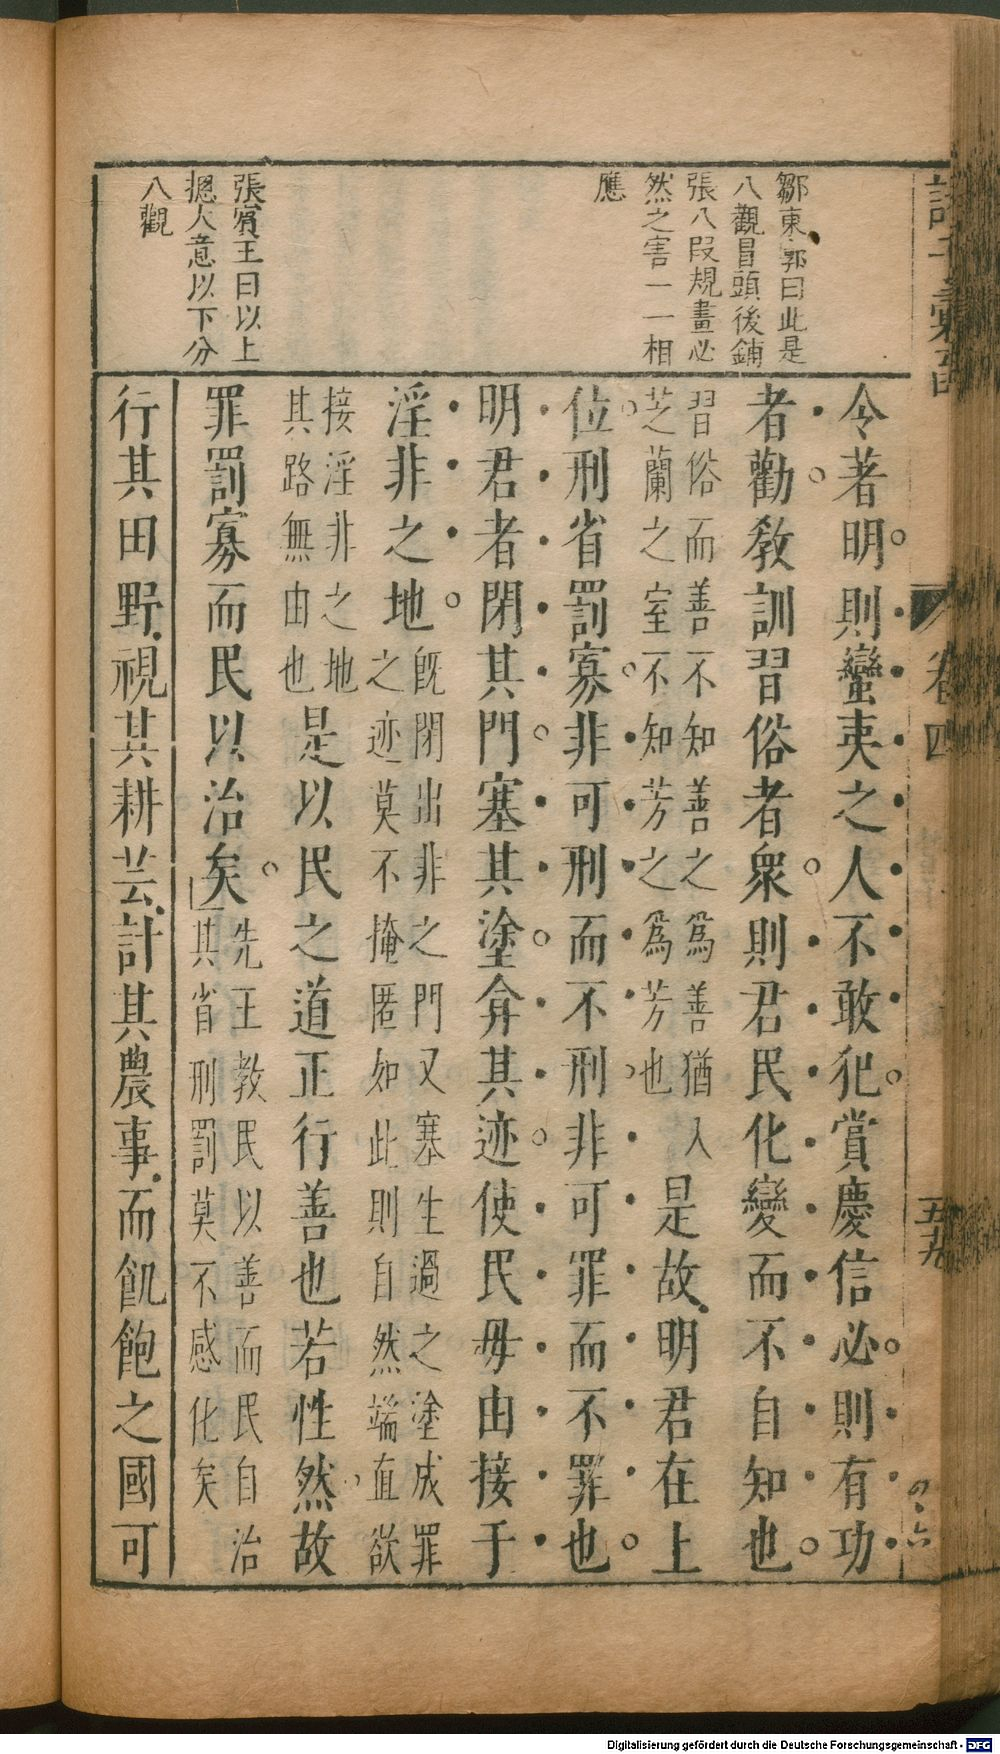 鄒東郭曰此是
八觀冒頭後鋪
張八段規畫必
然之害一一相
應
張賔王曰以上
揔大意以下分
八觀
令著明則蠻夷之人不敢犯賞慶信必則有功
者勸敎訓習俗者衆則君民化變而不自知也
習俗而善不知善之爲善猶人
芝蘭之室不知芳之爲芳也
是故明君在上
位刑省罰寡非可刑而不刑非可罪而不罪也
明君者閉其門塞其塗弇其迹使民毋由接于
淫非之地
旣閉出非之門又塞生過之塗成罪
之迹莫不掩匿如此則自然端直欲
接淫非之地
其路無由也
是以民之道正行善也若性然故
罪罰寡而民以治矣
先王教民以善而民自治
其省刑罰莫不感化矣
行其田野視其耕芸計其農事而飢飽之國可
卷四
五九
Digitalisierung gefördert durch die Deutsche Forschungsgemeinschaft - DFG